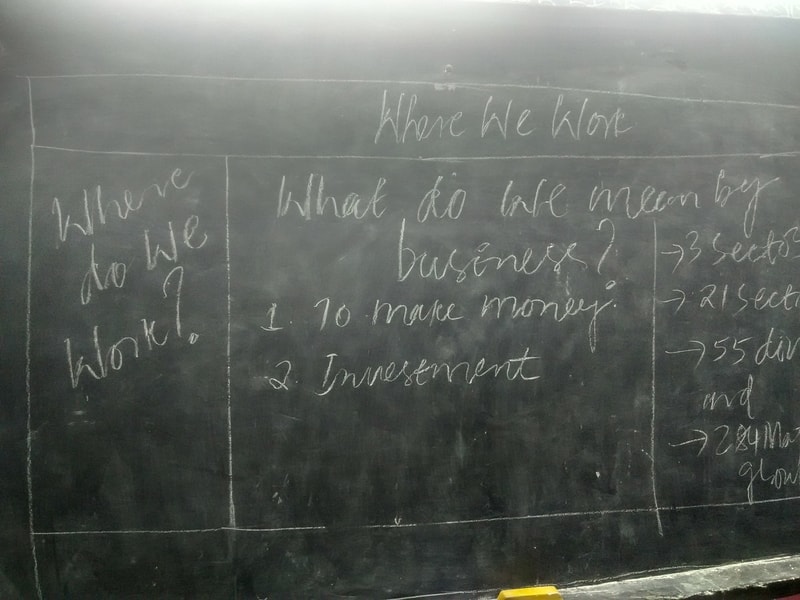 Where We Work
Where
do We
Work?
What do We mean by
business?
1. To make money.
2. Investment
→3 Secto
→21 Secto
→55 div
and
→284 Ma